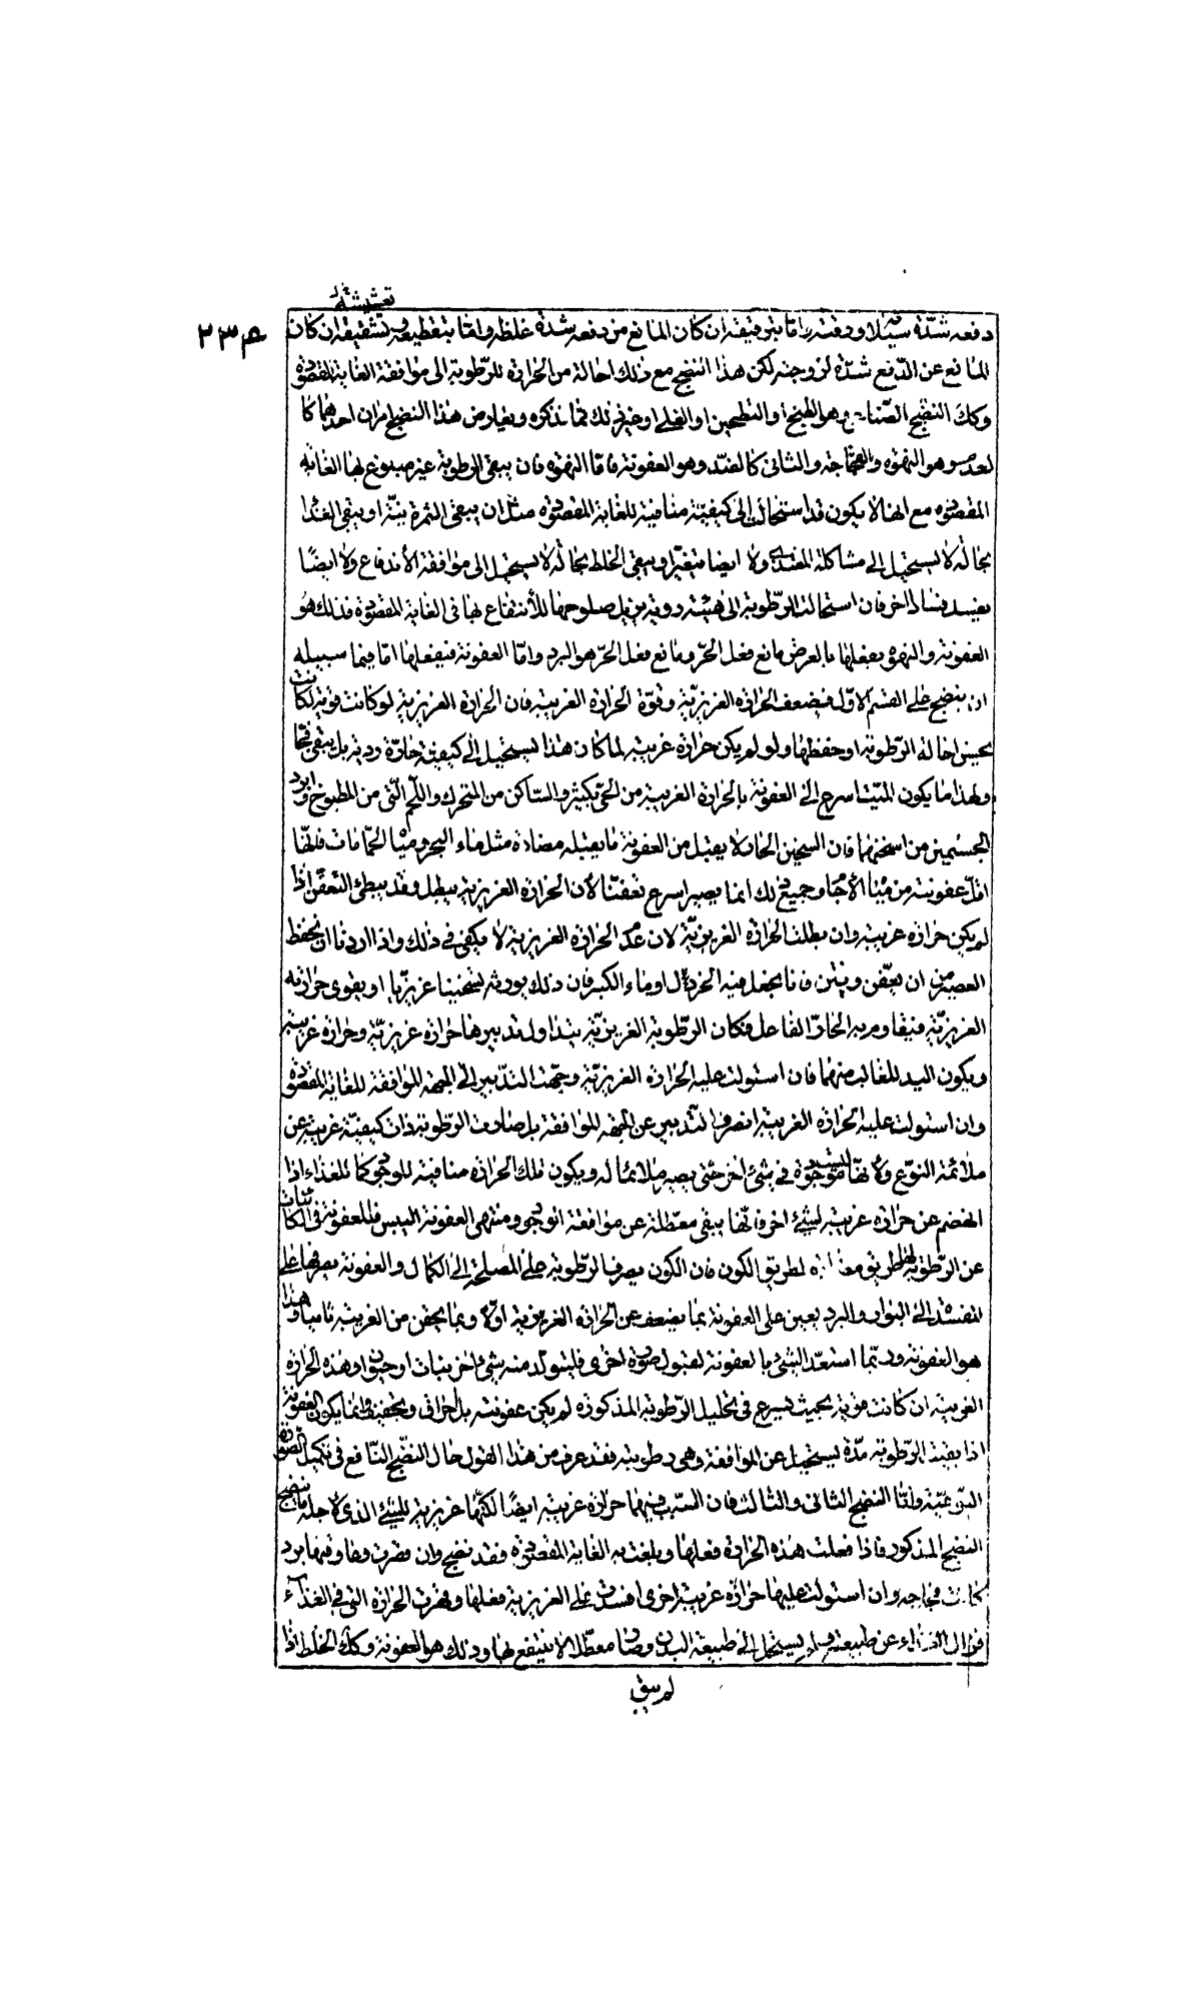 تفشيشه
٢٣٨
دفعه شدّة سيلانه ودقته واما بترقيقه ان كان المانع من دفعه شدة غلظه واما بتقطيعه وتشقيقه ان كان
المانع عن الدّفع شدّة لزوجته لكن هذا النضج مع ذلك احالة من الحرارة للرّطوبة الى موافقة الغاية المقصودة
وكك النضج الصّناعى وهو الطبخ او التطجين او القلى او غير ذلك مما نذكره ويعارض هذا النضج امران احدهما كا
لعدم وهو النهوة والفجاجة والثانى كالضدّ وهو العفونة فامّا النهوة فان يبقى الرطوبة غير مبلوغ بها الغاية
المقصودة مع انها لا يكون قد استحالت الى كيفيّة منافية للغاية المقصودة مثل ان يبقى الثمرة نيّة او يبقى الغذا
بحاله لا يستحيل الى مشاكلة المغتذى ولا ايضا متغيّر او يبقى الخلط بحاله لا يستحيل الى موافقة الاندفاع ولا ايضًا
يفسد فسادا اخر فان استحالت الرّطوبة الى هيئة رديّة يزيل صلوحها للأنتفاع بها فى الغاية المقصودة فذلك هُو
العفونة والنهوة يفعلها بالعرض مانع فعل الحرّ ومانع فعل الحرّ هو البرد وامّا العفونة فيفعلها امّا فيما سبيله
ان ينضج على القسم الاوّل فيضعف الحرارة الغريزيّة وقوّة الحرارة الغريبة فان الحرارة الغريزية لو كانت قوية لكانت
يحسن احالة الرّطوبة او حفظها ولو لم يكن حرارة غريبة لما كان هذا يستحيل الى كيفيّة حادّة رديّة بل يبقى فجّا
ولهذا ما يكون الميّت اسرع الى العفونة بالحرارة الغريبة من الحىّ بكثير والسّاكن من المتحرك واللّحم النّى من المطبوخ وابرد
الجسمين من اسخنهما فان السخين الحار لا يقبل من العفونة ما يقبله مضادة مثل ماء البحر ومياه الحمّامات فانّها
اقلّ عفونة من مياه الأجام وجميع ذلك انما يصير اسرع تعفنّا لأن الحرارة الغريزية يبطل وقد يبطئ التعفّن اذا
لم يكن حرارة غريبة وان بطلت الحرارة الغريزيّة لان عدم الحرارة الغريزية لا يكفى فى ذلك واذا اردنا ان نحفظ
العصير من ان يعفن وينتن فانا نجعل فيه الخردل او ماء الكبر فان ذلك يورثه تسخينا غريزيّا او يقوى حرارته
الغريزيّة فيقاوم به الحارّ الفاعل فكان الرّطوبة الغريزيّة يتداول تدبيرها حرارة غريزيّة وحرارة غريبة
ويكون اليد للغالب منهما فان استولت عليه الحرارة الغريزيّة وجهت التدبير الى الجهة الموافقة للغاية المقصودة
وان استولت عليه الحرارة الغريبة انصرف التدبير عن الجهة الموافقة بل صارت الرّطوبة ذات كيفيّة غريبة عن
ملائمة النوع ولانها ليست موجوة فى شئ اخر حتى يصير ملائما له ويكون تلك الحرارة منافية للوجود كما للغذاء اذا
انهضم عن حرارة غريبة لشئ اخر فانّها يبقى معطلة عن موافقة الوجود ومنتهى العفونة اليبس فالعفونة فى الكائنات
عن الرّطوبة لها طريق لطريق الكون فان الكون يصرف الرّطوبة على المصلحة الى الكمال والعفونة يصرفها على
المفسدة الى البوار والبرد يعين على العفونة بما يضعف عن الحرارة الغريزية اوّلا وبما يحقن من الغريبة ثانيا وهذا
هو العفونة وربّما استعدّ الشئ بالعفونة لقبول صورة اخرى فليتولّد منه شئ اخر نبات او حيوان وهذه الحرارة
الغريبة ان كانت قوية بحيث يسرع فى تحليل الرّطوبة المذكورة لم يكن عفونة بل احراق وتجفيف وانما يكون العفونة
اذا بقيت الرّطوبة مدّة يستحيل عن الموافقة وهى رطوبة فقد عرف من هذا القول حال النضج النّافع فى تكميل الصّورة
النّوعيّة وامّا النضج الثانى والثالث فان السّبب فيهما حرارة غريبة ايضًا لكنّها غريزية للشئ الذى لاجله ما ينضج
النضج المذكور فاذا فعلت هذه الحرارة فعلها وبلغت به الغاية المقصودة فقد نضج وان قصرت وقاومها برد
كانت فجاجة وان استولت عليها حرارة غريبة اخرى افسدت على الغريزية فعلها وقهرت الحرارة التى فى الغذآء
فزال الغذاء عن طبيعته ولم يستحل الى طبيعة البدن وصار معطلا لا ينتفع بها وذلك هو العفونة وكك الخلط اذا
لم يبق